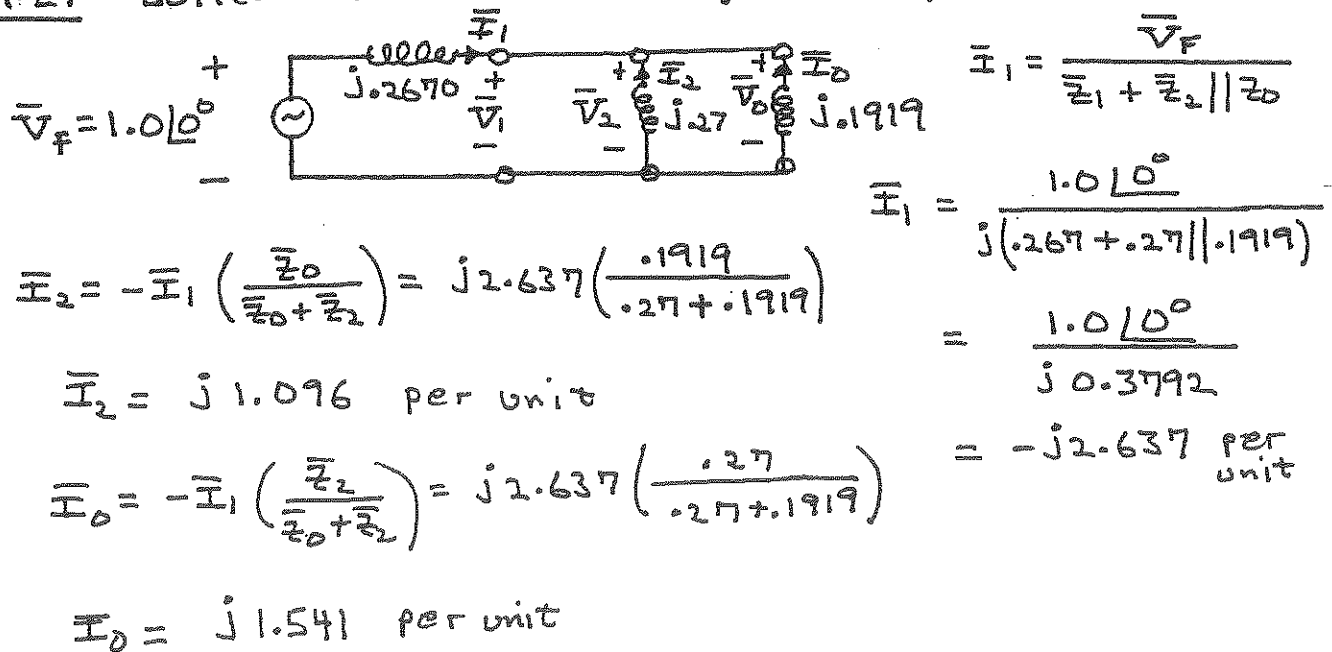 Ī₁
+ j.2670 + + Ī₂ + Ī₀
V̄_F = 1.0∠0° ~ V̄₁ V̄₂ j.27 V̄₀ j.1919
− − − −
Ī₁ = V̄_F / (Z̄₁ + Z̄₂||Z₀)
Ī₁ = 1.0∠0° / j(.267+.27||.1919)
= 1.0∠0° / j0.3792
= -j2.637 per unit
Ī₂ = -Ī₁ (Z̄₀ / (Z̄₀+Z̄₂)) = j2.637 (.1919 / (.27+.1919))
Ī₂ = j1.096 per unit
Ī₀ = -Ī₁ (Z̄₂ / (Z̄₀+Z̄₂)) = j2.637 (.27 / (.27+.1919))
I₀ = j1.541 per unit